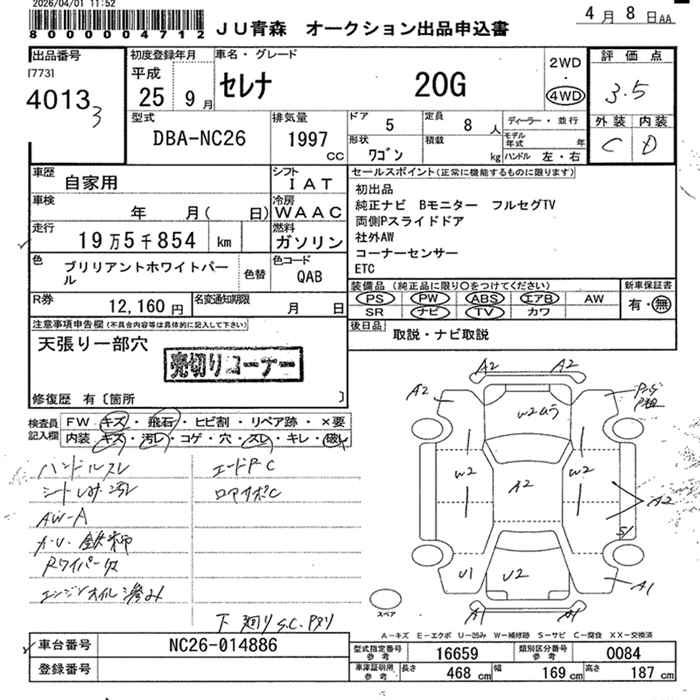 2026/04/01 11:52
8 0 0 0 0 0 4 7 1 2
JU青森 オークション出品申込書
4月8日AA
出品番号
[773]
4013 3
初度登録年月
平成
25年9月
車名・グレード
セレナ 20G
2WD
・
4WD
評価点
3.5
外装 内装
C D
型式
DBA-NC26
排気量
1997 CC
ドア 5
定員 8人
形状 ワゴン
積載 kg
ディーラー・並行
モデル年式 年
ハンドル 左・右
車歴 自家用
シフト IAT
車検 年 月( 日)
冷房 WAAC
走行 19万5千854 km
燃料 ガソリン
色 ブリリアントホワイトパール
色替
色コード QAB
R券 12,160円
名変通知期限 月 日
セールスポイント(正常に機能するものに限ります)
初出品
純正ナビ Bモニター フルセグTV
両側Pスライドドア
社外AW
コーナーセンサー
ETC
装備品(純正品に限り○をつけてください)
PS PW ABS エアB AW
SR ナビ TV カワ
新車保証書
有・無
後日品 取説・ナビ取説
注意事項申告欄(不具合内容等は具体的に記入して下さい)
天張り一部穴
売切りコーナー
修復歴 有〔箇所 〕
検査員記入欄
FW キズ・飛石・ヒビ割・リペア跡・×要
内装 キズ・汚レ・コゲ・穴・スレ・キレ・破レ
ハンドルスレ
AW-A
エンジンオイル滲み
A2 A2
A2
W2
W2
A2
A2
S1
U1
U2
A1
A1
A1
スペア
A-キズ E-エクボ U-凹み W-補修跡 S-サビ C-腐食 XX-交換済
車台番号 NC26-014886
登録番号
型式指定番号参考 16659
類別区分番号参考 0084
車庫証明用参考 長さ 468cm 幅 169cm 高さ 187cm